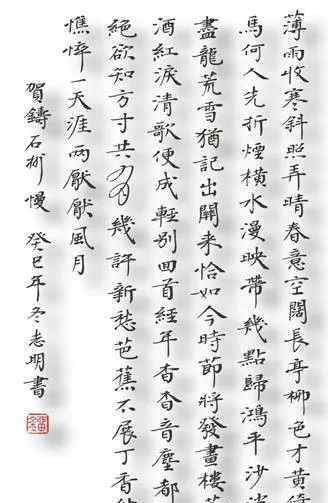 薄雨收寒斜照弄晴春意空闊長亭柳色才黃倚
馬何人先折煙橫水漫映帶幾點歸鴻平沙
盡龍荒雪猶記出關來恰如今時節將發畫樓
酒紅淚清歌便成輕別回首經年杳杳音塵都
絕欲知方寸共有幾許新愁芭蕉不展丁香
憔悴一天涯兩厭厭風月
賀鑄 石州慢 癸巳年冬志明書